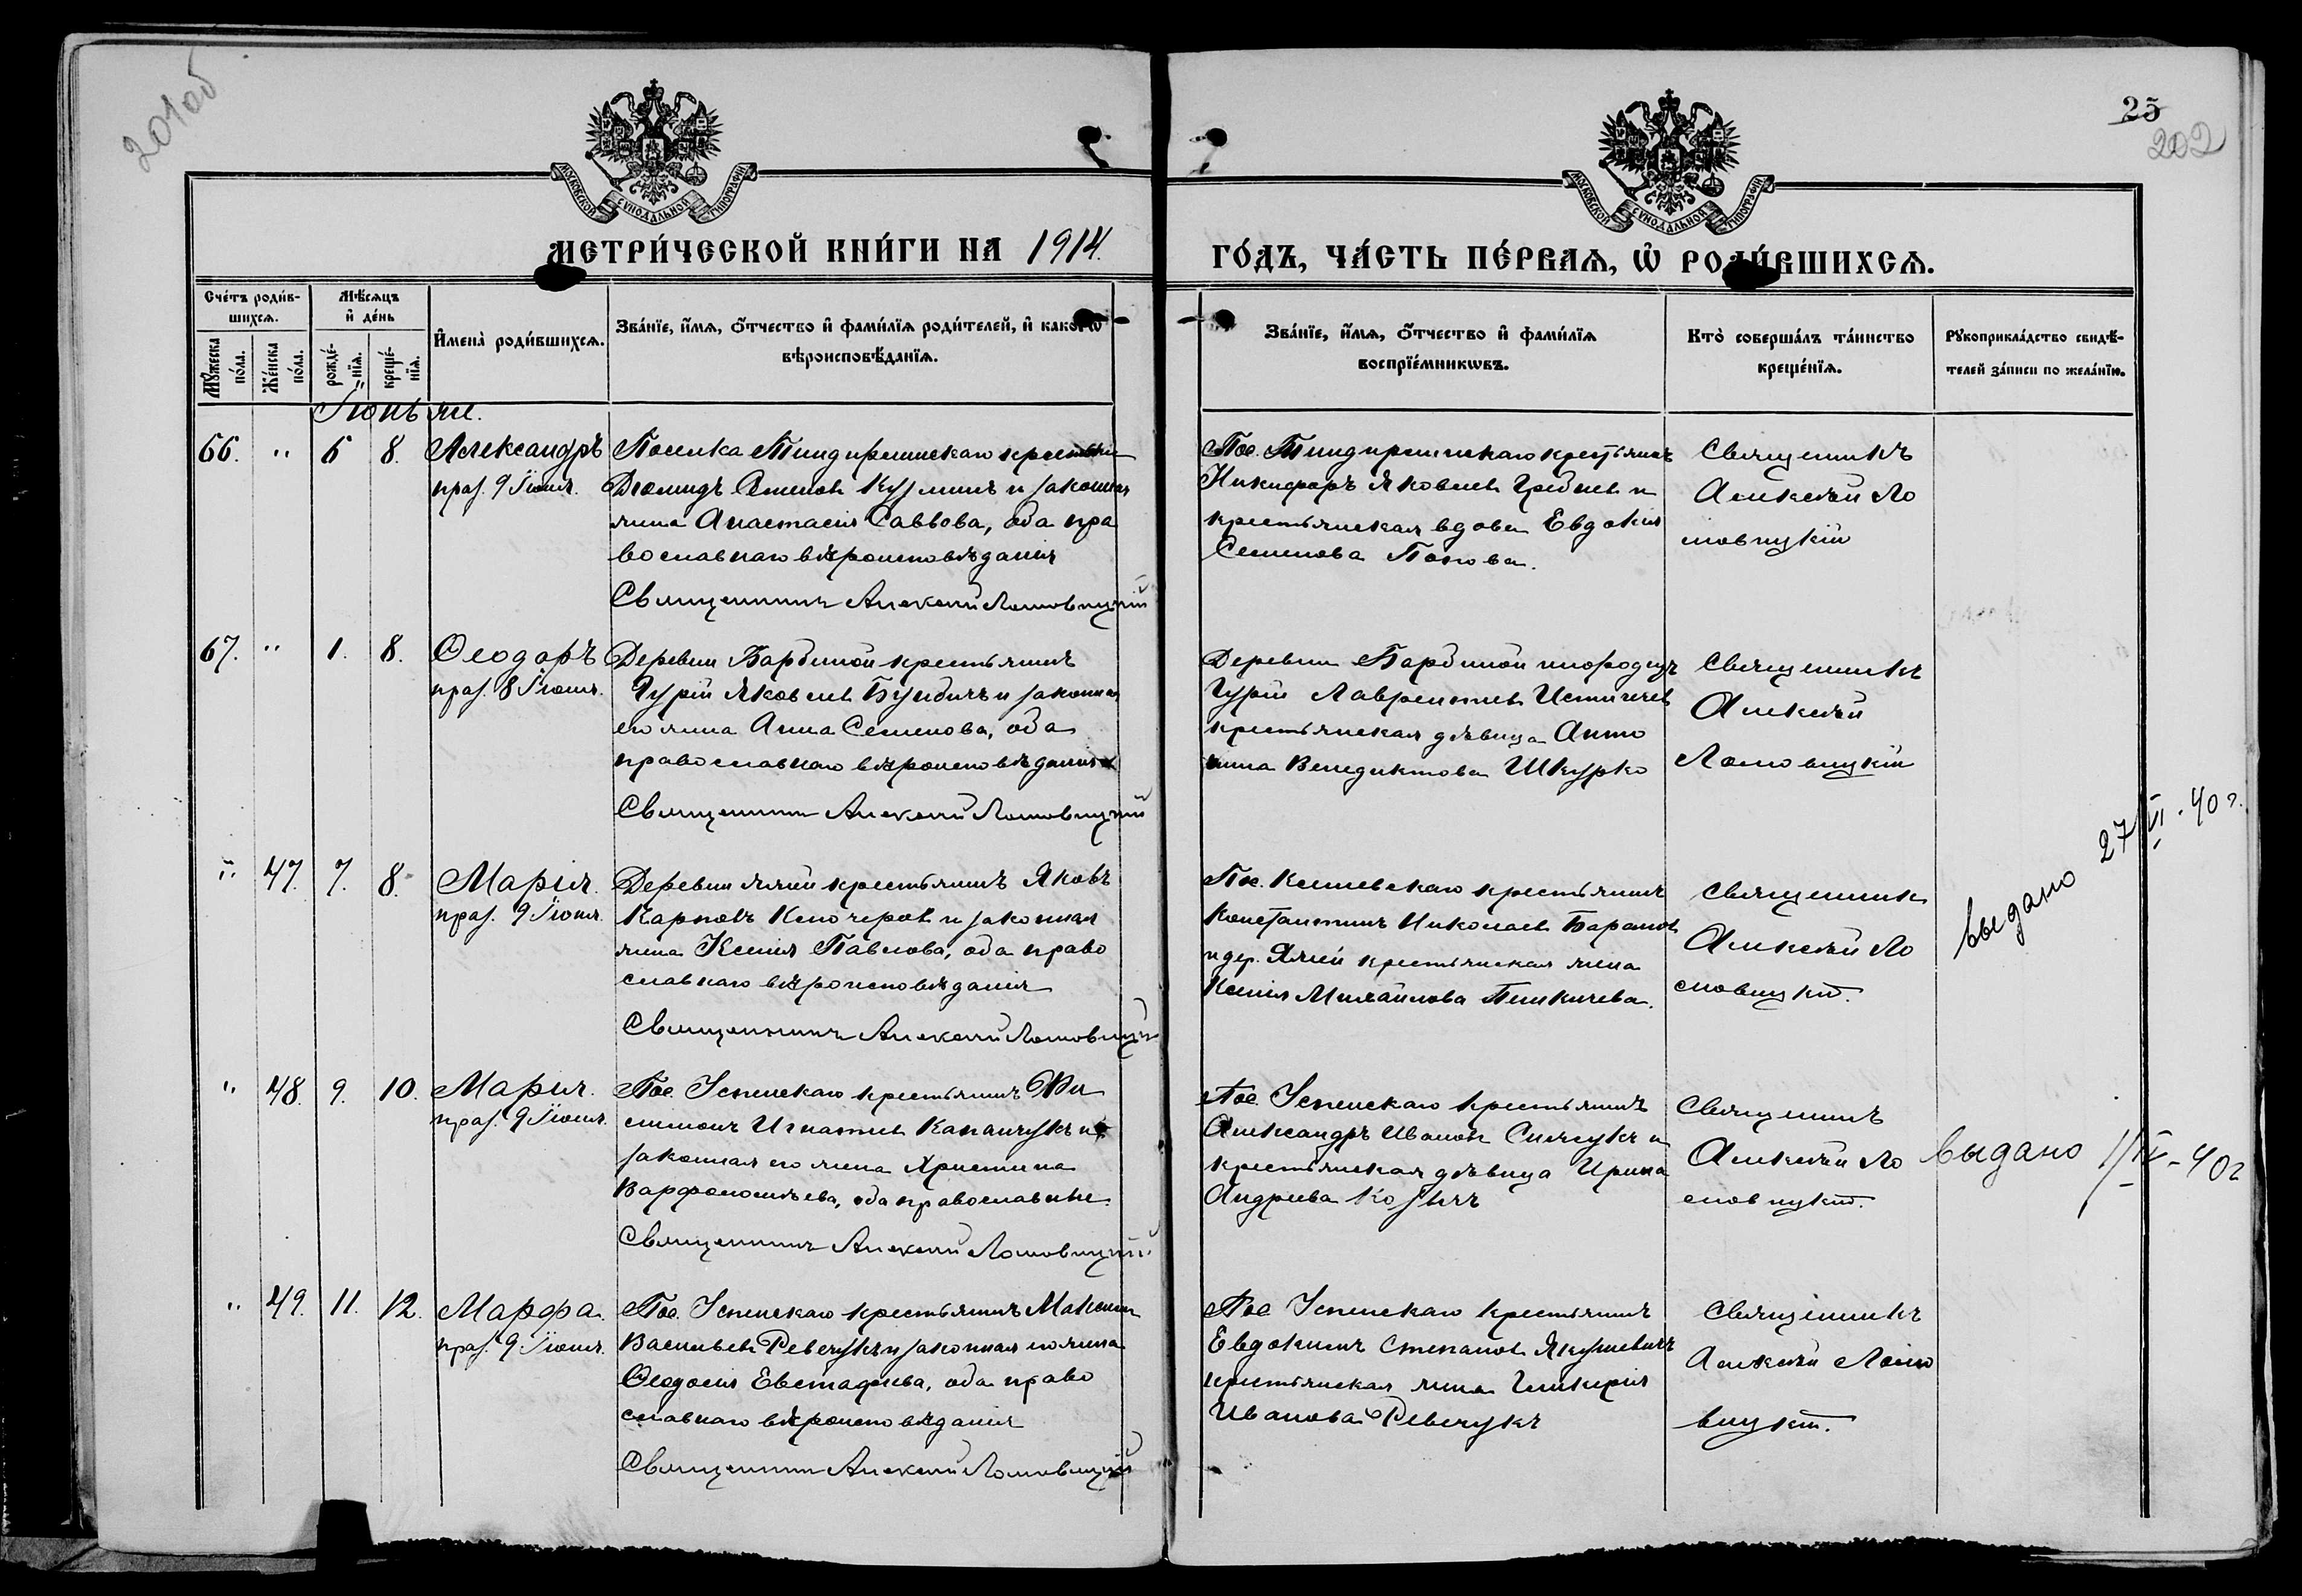 201об
25
202
МОСКОВСКОЙ СѴНОДАЛЬНОЙ ТИПОГРАФІИ
МОСКОВСКОЙ СѴНОДАЛЬНОЙ ТИПОГРАФІИ
МЕТРИ́ЧЕСКОЙ КНИ́ГИ НА 1914.
ГО́ДЪ, ЧА́СТЬ ПЕ́РВАѦ, Ѡ҆ РОДИ́ВШИХСѦ.
Сче́тъ роди́в-
шихсѧ.
Мꙋ́жеска
по́ла.
Же́нска
по́ла.
Мѣ́сѧцъ
и҆ де́нь
рожде́-
нїѧ.
креще́-
нїѧ.
И҆мена̀ роди́вшихсѧ.
Зва́нїе, и҆́мѧ, ѻ҆́тчество и҆ фами́лїѧ роди́телей, и҆ како́гѡ
вѣроисповѣ́данїѧ.
Зва́нїе, и҆́мѧ, ѻ҆́тчество и҆ фами́лїѧ
воспрїе́мникѡвъ.
Кто̀ соверша́лъ та́инство
креще́нїѧ.
Рꙋкоприкла́дство свидѣ́-
телей за́писи по жела́нїю.
Іюнь
66. " 6 8. Александръ
праз. 9 Іюня.
Поселка крестьянинъ
Диомидъ и законная
жена Анастасія Саввова, оба пра
вославнаго вѣроисповѣданія
Священникъ Алексѣй Ломовицкій
Пос. крестьянинъ
Никифоръ Яковлевъ и
крестьянская вдова Евдокія
Семенова Попова.
Священникъ
Алексѣй Ло
мовицкій
67. " 1. 8. Ѳеодоръ
праз. 8 Іюня.
Деревни Барбиной крестьянинъ
Гурій Яковлевъ и законная
его жена Анна Семенова, оба
православнаго вѣроисповѣданія
Священникъ Алексѣй Ломовицкій
Деревни Барбиной инородецъ
Гурій Лаврентіевъ
крестьянская дѣвица Анто
нина Венедиктова Шкурко
Священникъ
Алексѣй
Ломовицкій
" 47. 7. 8. Марія.
праз. 9 Іюня.
Деревни крестьянинъ Яковъ
Карповъ и законная
жена Ксенія Павлова, оба право
славнаго вѣроисповѣданія
Священникъ Алексѣй Ломовицкій
Пос. крестьянинъ
Константинъ Николаевъ Барановъ
и дер. крестьянская жена
Ксенія Михайлова
Священникъ
Алексѣй Ло
мовицкій.
выдано 27/VI-40 г.
" 48. 9. 10. Марія.
праз. 9 Іюня.
Пос. Успенскаго крестьянинъ Фи
Игнатіевъ и
законная его жена Христина
Варфоломѣева, оба православные.
Священникъ Алексѣй Ломовицкій
Пос. Успенскаго крестьянинъ
Александръ Ивановъ и
крестьянская дѣвица Ирина
Андреева
Священникъ
Алексѣй Ло
мовицкій.
выдано 1/IV-40г
" 49. 11. 12. Марфа.
праз. 9 Іюня.
Пос. Успенскаго крестьянинъ Максимъ
Васильевъ Ревчукъ и законная его жена
Ѳеодосія Евстафіева, оба право
славнаго вѣроисповѣданія
Священникъ Алексѣй Ломовицкій
Пос. Успенскаго крестьянинъ
Евдокимъ Степановъ Якушевичъ
крестьянская жена Гликерія
Иванова Ревчукъ
Священникъ
Алексѣй Ломо
вицкій.